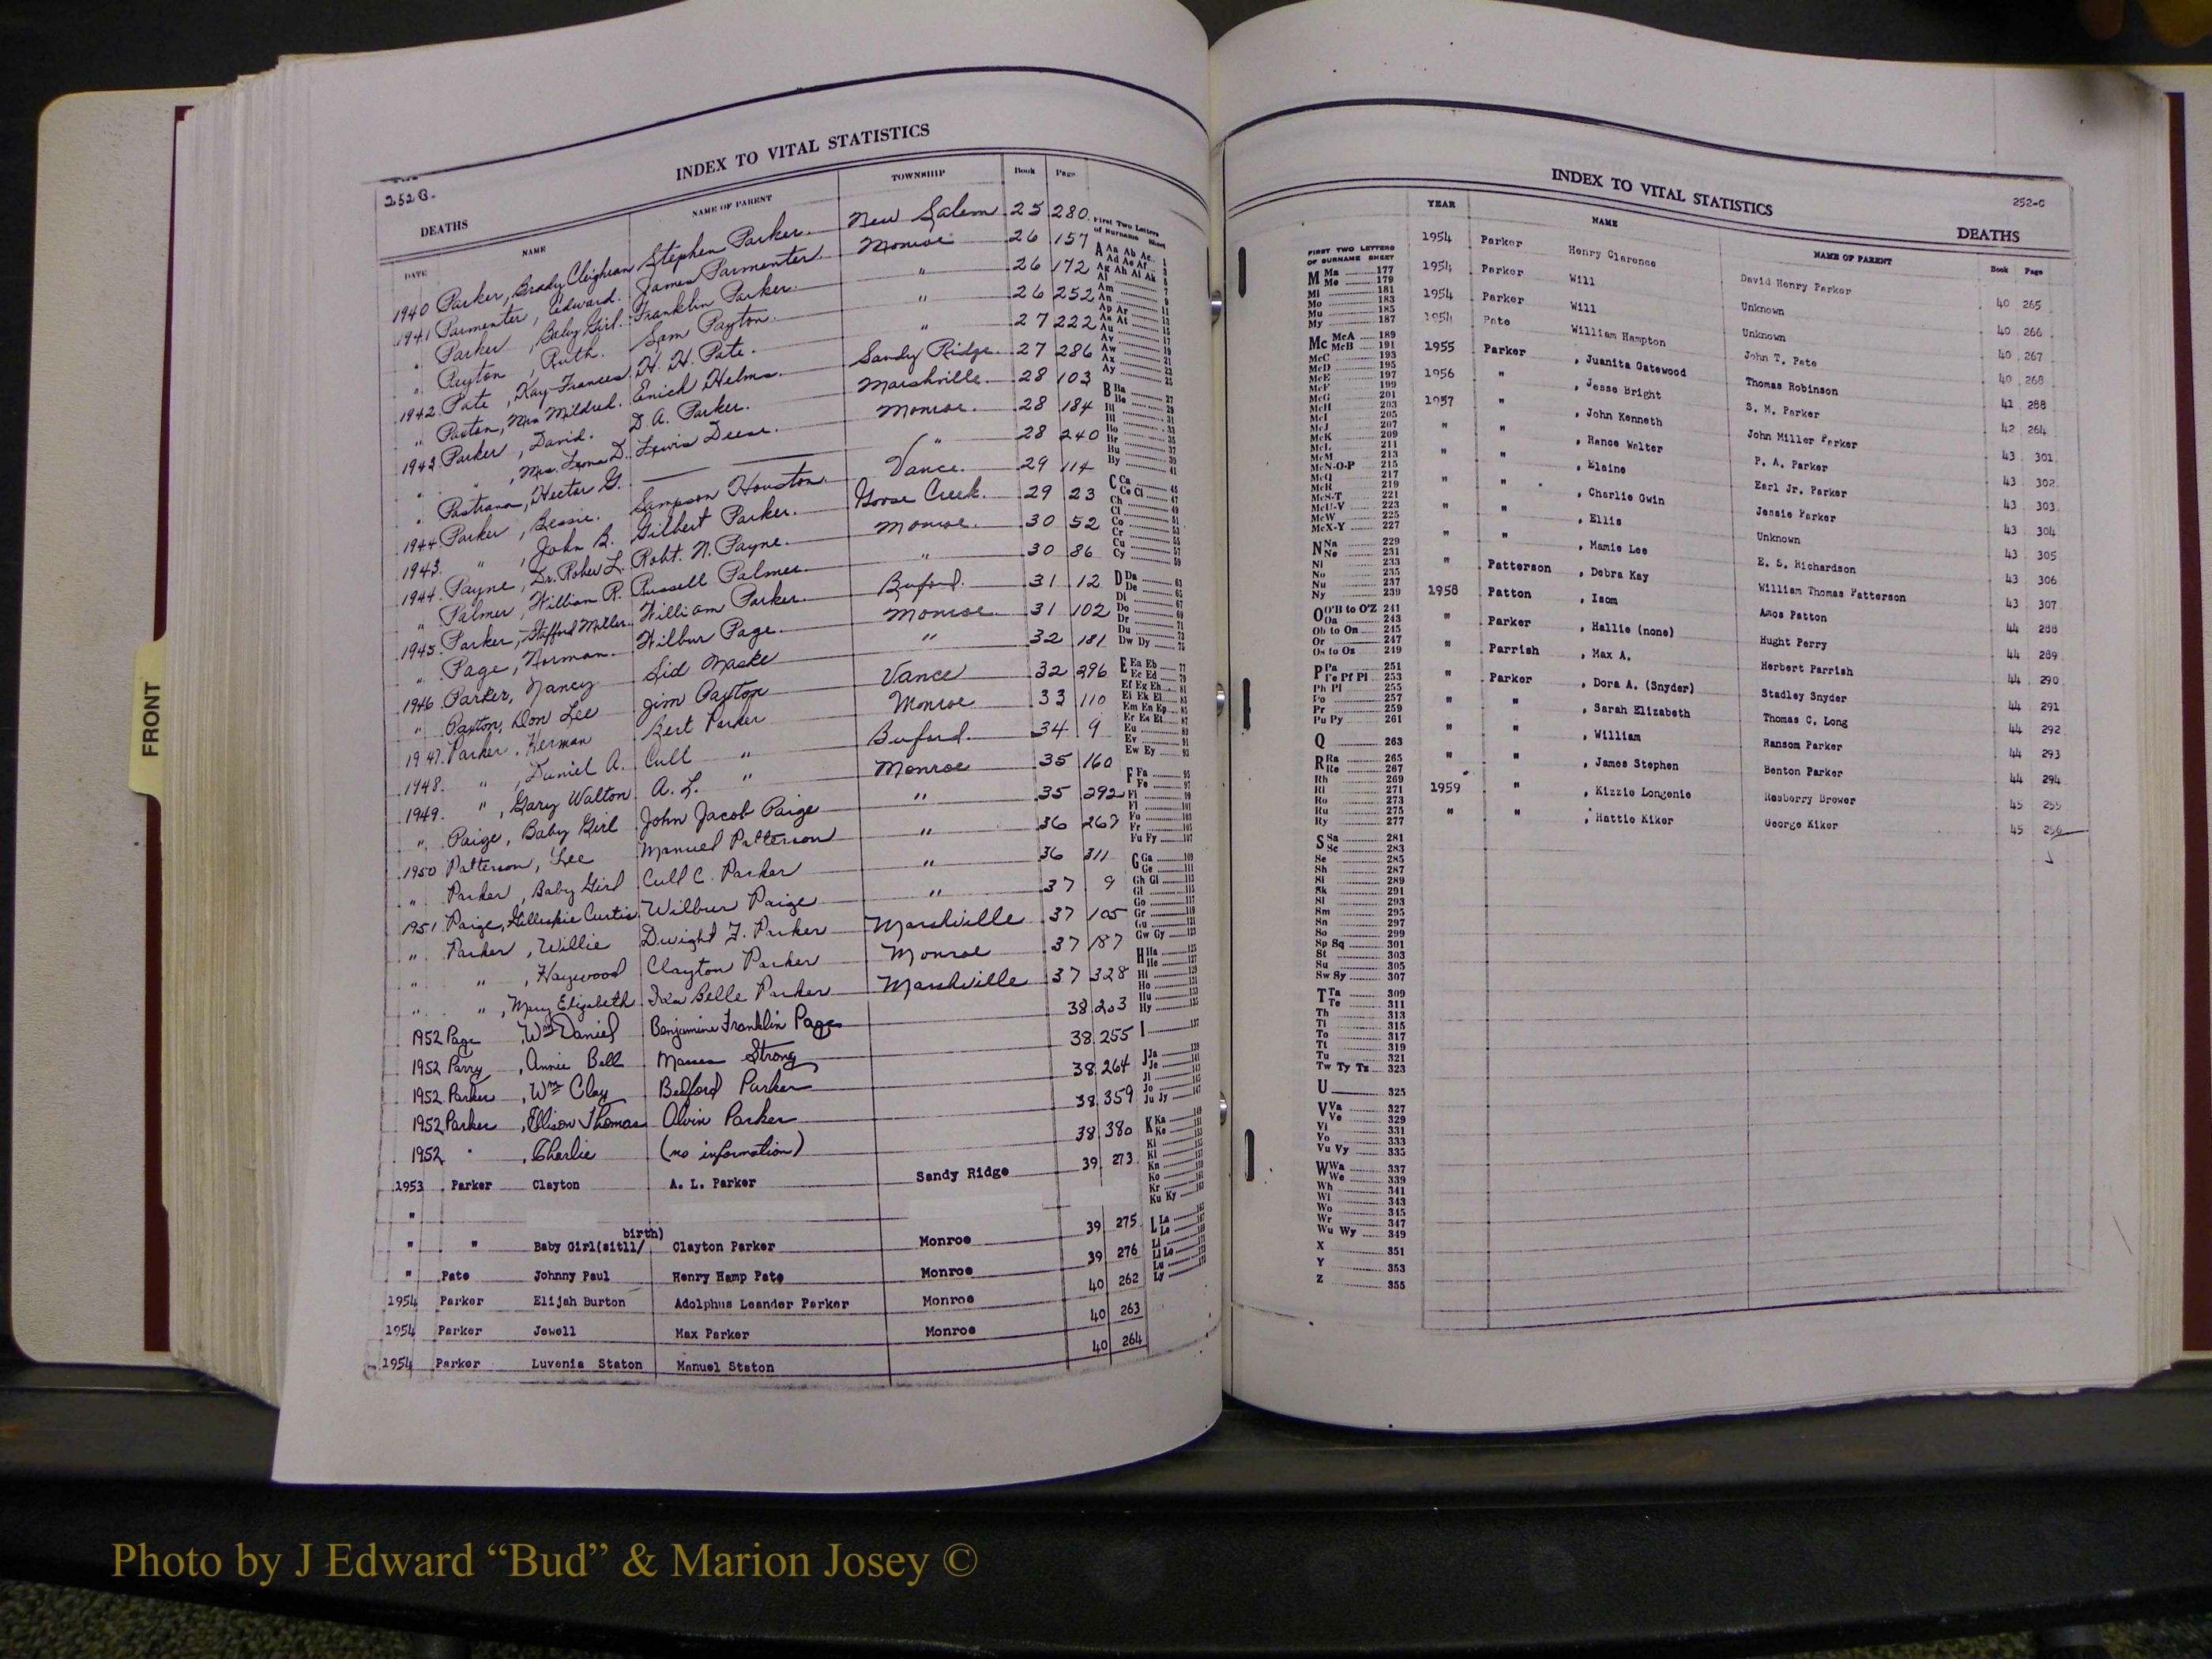 INDEX TO VITAL STATISTICS
252B.
DEATHS
DATE NAME NAME OF PARENT TOWNSHIP Book Page
1940 Parker, Brady Cleighran Stephen Parker. New Salem 25 280
1941 Parmenter, Edward. James Parmenter. Monroe 26 157
" Parker, Baby Girl. Franklin Parker. " 26 172
" Payton, Ruth. Sam Payton. " 26 252
1942. Pate, Kay Frances H. H. Pate. " 27 222
" Paxton, Mrs Mildred. Enick Helms. Sandy Ridge. 27 286
1943. Parker, David. D. A. Parker. Marshville. 28 103
" ", Mrs. Leona D. Lewis Deese. Monroe. 28 184
" Pastrana, Hector G. " 28 240
1944 Parker, Bessie. Sampson Houston. Vance. 29 114
1943. ", John B. Gilbert Parker. Goose Creek. 29 23
1944. Payne, Dr. Robert L. Robt. N. Payne. Monroe. 30 52
" Palmer, William R. Russell Palmer. " 30 86
1945. Parker, Stafford Miller. William Parker. Buford. 31 12
" Page, Norman. Wilbur Page. Monroe 31 102
1946 Parker, Nancy Sid Maske " 32 181
" Paxton, Don Lee Jim Paxton Vance 32 296
1947. Parker, Herman Bert Parker Monroe 33 110
1948. ", Daniel A. Cull " Buford. 34 9
1949. ", Gary Walton A. L. " Monroe 35 160
" Paige, Baby Girl John Jacob Paige " 35 292
1950 Patterson, Lee Manuel Patterson " 36 267
" Parker, Baby Girl Cull C. Parker " 36 311
1951 Paige, Gillespie Curtis Wilbur Paige " 37 9
" Parker, Willie Dwight F. Parker Marshville 37 105
" ", Haywood Clayton Parker Monroe 37 187
" ", Mary Elizabeth Ida Belle Parker Marshville 37 328
1952 Page, Wm Daniel Benjamine Franklin Page 38 203
1952 Parry, Annie Bell Masses Strong 38 255
1952 Parker, Wm Clay Bedford Parker 38 264
1952 Parker, Ellison Thomas Alvin Parker 38 359
1952 ", Charlie (no information) 38 380
1953 Parker Clayton A. L. Parker Sandy Ridge 39 273
"
birth)
" " Baby Girl(sitll/ Clayton Parker Monroe 39 275
" Pate Johnny Paul Henry Hamp Pate Monroe 39 276
1954 Parker Elijah Burton Adolphus Leander Parker Monroe 40 262
1954 Parker Jewell Max Parker Monroe 40 263
1954 Parker Luvenia Staton Manuel Staton 40 264
First Two Letters
of Surname Sheet
A Aa Ab Ac
Ad Ae Af
Ag Ah Ai Ak
Al
Am
An
Ap Ar
As At
Au
Av
Aw
Ax
Ay
B Ba
Be
Bi
Bl
Bo
Br
Bu
By
C Ca
Ce Ci
Ch
Cl
Co
Cr
Cu
Cy
D Da
De
Di
Do
Dr
Du
Dw Dy
E Ea Eb
Ec Ed
Ef Eg Eh
Ei Ek El
Em En Ep
Er Es Et
Eu
Ev
Ew Ey
F Fa
Fe
Fi
Fl
Fo
Fr
Fu Fy
G Ga
Ge
Gh Gi
Gl
Go
Gr
Gu
Gw Gy
H Ha
He
Hi
Ho
Hu
Hy
I
J Ja
Je
Ji
Jo
Ju Jy
K Ka
Ke
Ki
Kl
Kn
Ko
Kr
Ku Ky
L La
Le
Li
Ll Lo
Lu
Ly
INDEX TO VITAL STATISTICS
252-C
DEATHS
YEAR NAME NAME OF PARENT Book Page
1954 Parker Henry Clarence David Henry Parker 40 265
1954 Parker Will Unknown 40 266
1954 Parker Will Unknown 40 267
1954 Pate William Hampton John T. Pate 40 268
1955 Parker , Juanita Gatewood Thomas Robinson 41 288
1956 " , Jesse Bright S. M. Parker 42 264
1957 " , John Kenneth John Miller Parker 43 301
" " , Rance Walter P. A. Parker 43 302
" " , Elaine Earl Jr. Parker 43 303
" " , Charlie Gwin Jessie Parker 43 304
" " , Ellis Unknown 43 305
" " , Mamie Lee E. S. Richardson 43 306
" Patterson , Debra Kay William Thomas Patterson 43 307
1958 Patton , Isom Amos Patton 44 288
" Parker , Hallie (none) Hught Perry 44 289
" Parrish , Max A. Herbert Parrish 44 290
" Parker , Dora A. (Snyder) Stadley Snyder 44 291
" " , Sarah Elizabeth Thomas C. Long 44 292
" " , William Ransom Parker 44 293
" " , James Stephen Benton Parker 44 294
1959 " , Kizzie Longenie Rasberry Brower 45 255
" " , Hattie Kiker George Kiker 45 256
FIRST TWO LETTERS
OF SURNAME SHEET
M Ma 177
Me 179
Mi 181
Mo 183
Mu 185
My 187
Mc McA 189
McB 191
McC 193
McD 195
McE 197
McF 199
McG 201
McH 203
McI 205
McJ 207
McK 209
McL 211
McM 213
McN-O-P 215
McQ 217
McR 219
McS-T 221
McU-V 223
McW 225
McX-Y 227
N Na 229
Ne 231
Ni 233
No 235
Nu 237
Ny 239
O O'B to O'Z 241
Oa 243
Ob to On 245
Or 247
Os to Oz 249
P Pa 251
Pe Pf Pl 253
Ph Pi 255
Po 257
Pr 259
Pu Py 261
Q 263
R Ra 265
Re 267
Rh 269
Ri 271
Ro 273
Ru 275
Ry 277
S Sa 281
Sc 283
Se 285
Sh 287
Si 289
Sk 291
Sl 293
Sm 295
Sn 297
So 299
Sp Sq 301
St 303
Su 305
Sw Sy 307
T Ta 309
Te 311
Th 313
Ti 315
To 317
Tt 319
Tu 321
Tw Ty Tz 323
U 325
V Va 327
Ve 329
Vi 331
Vo 333
Vu Vy 335
W Wa 337
We 339
Wh 341
Wi 343
Wo 345
Wr 347
Wu Wy 349
X 351
Y 353
Z 355
FRONT
Photo by J Edward “Bud” & Marion Josey ©